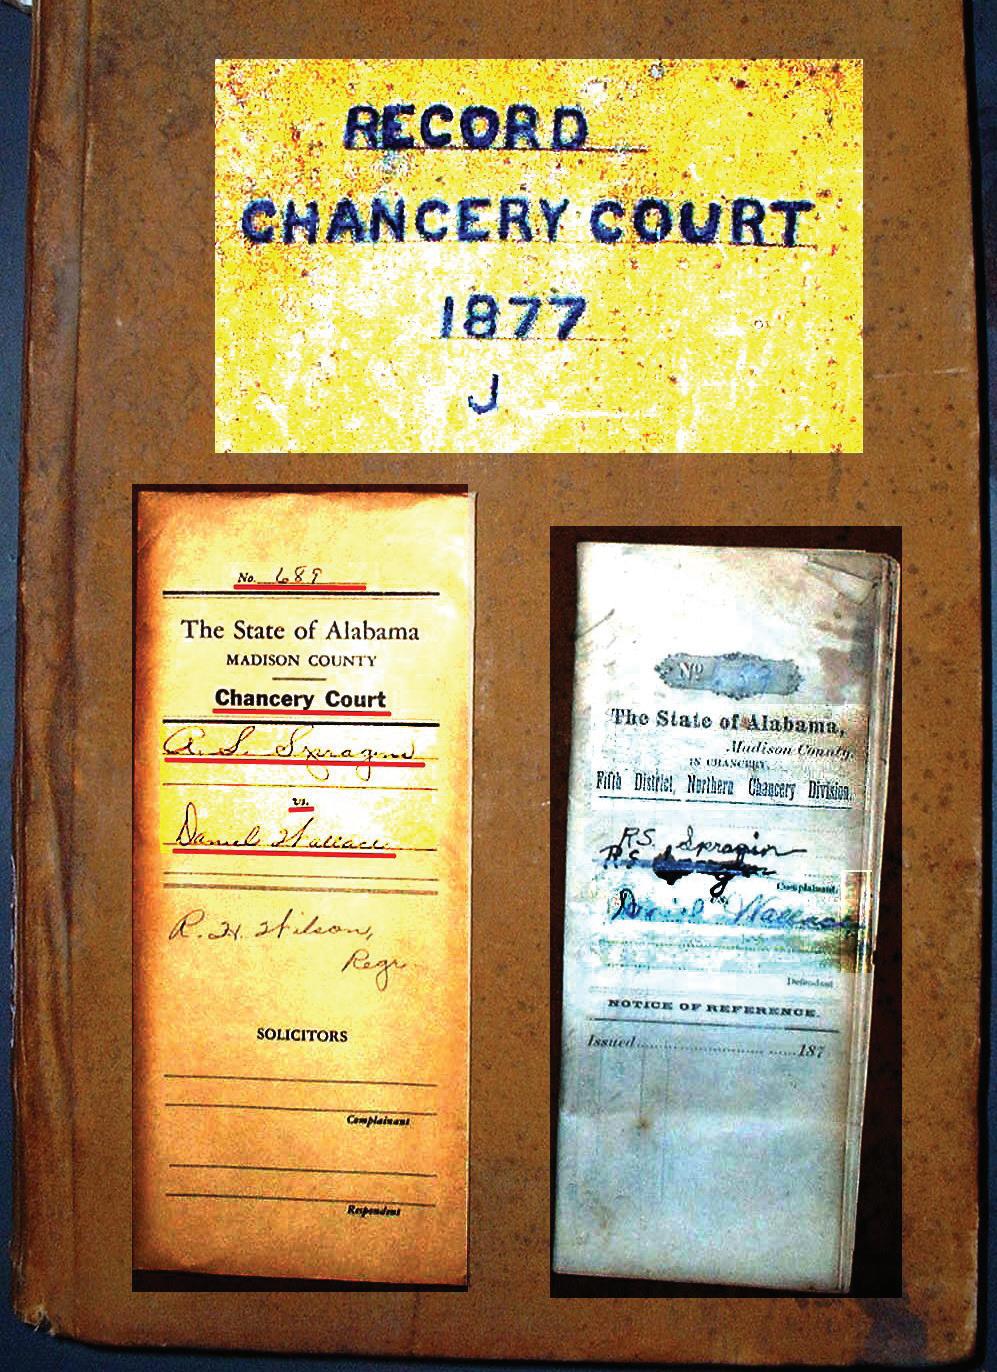 RECORD
CHANCERY COURT
1877
J
No. 689
The State of Alabama
MADISON COUNTY
Chancery Court
R. S. Spragins
vs.
Daniel Wallace
R. H. Wilson,
Regr.
SOLICITORS
Complainant
Respondent
No
The State of Alabama,
Madison County.
IN CHANCERY.
Fifth District, Northern Chancery Division.
R.S. Spragin
R.S.
Complainant.
vs.
Daniel Wallace
Defendant
NOTICE OF REFERENCE.
Issued 187